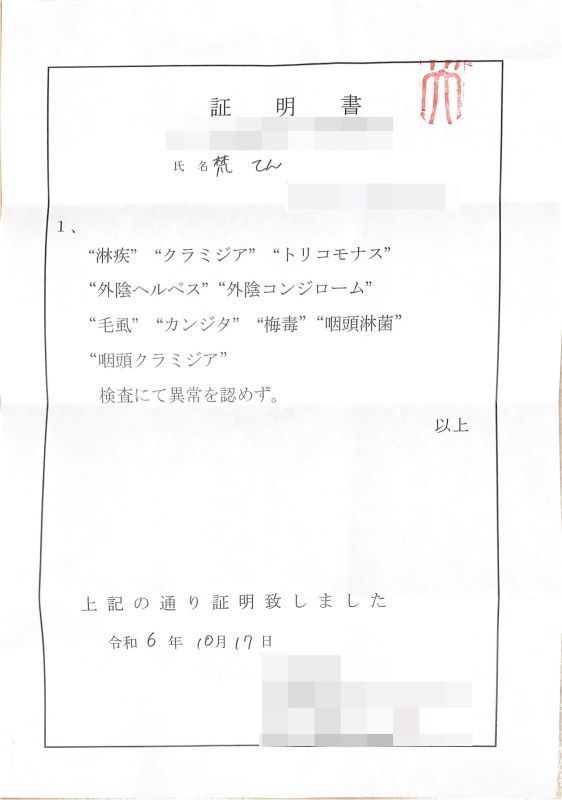 証明書
氏名 梵 てん
1、
“淋疾” “クラミジア” “トリコモナス”
“外陰ヘルペス” “外陰コンジローム”
“毛虱” “カンジタ” “梅毒” “咽頭淋菌”
“咽頭クラミジア”
検査にて異常を認めず。
以上
上記の通り証明致しました
令和 6 年 10月 17 日